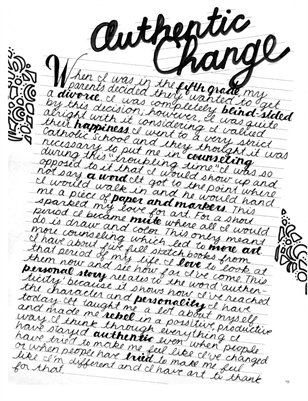 Authentic
Change
When I was in the fifth grade, my
parents decided they wanted to get
a divorce. I was completely blind-sided
by this decision, however, I was quite
alright with it considering I valued
their happiness. I went to a very strict
Catholic School and they thought it was
necessary to put me in counseling
during this "troubling time." I was so
opposed to it that I would show up and
not say a word. It got to the point where
I would walk in and he would hand
me a piece of paper and markers. This
sparked my love for art. For a short
period I became mute where all I would
do is draw and color. This only meant
more counseling which led to more art.
I have about five full sketch books from
that period of my life. I love to look at
them over and see how far I've come. This
personal story relates to the word "authen-
ticity" because it shows how I've reached
the character and personality I have
today. It taught me a lot about myself
and made me rebel in a positive, productive
way. I think through everything I
have stayed authentic even when people
have tried to make me feel like I've changed
or when people have tried to make me feel
like I'm different and I have art to thank
for that.